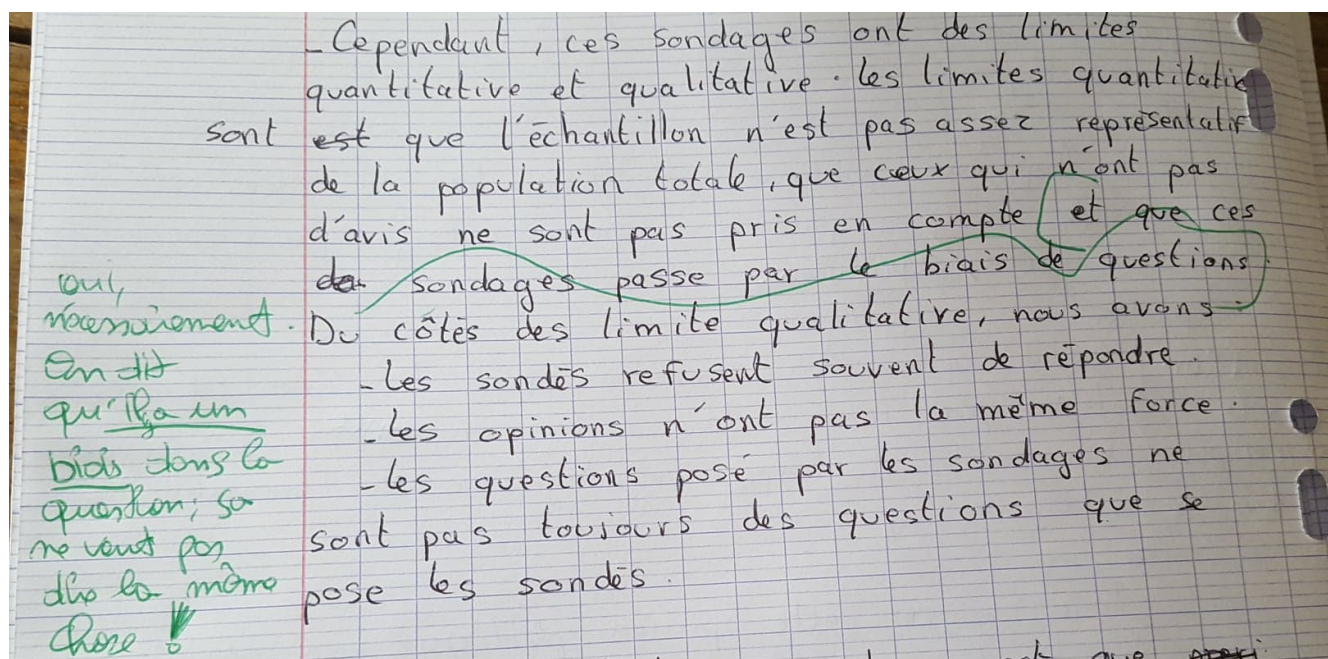 - Cependant, ces sondages ont des limites
quantitative et qualitative. les limites quantitative
sont est que l'échantillon n'est pas assez représentatif
de la population totale, que ceux qui n'ont pas
d'avis ne sont pas pris en compte et que ces
de sondages passe par le biais de questions.
Du côtés des limite qualitative, nous avons :
- Les sondés refusent souvent de répondre.
- les opinions n'ont pas la même force.
- les questions posé par les sondages ne
sont pas toujours des questions que se
pose les sondés.
oui,
nécessairement.
On dit
qu'il y a un
biais dans la
question ; ça
ne veut pas
dire la même
chose !